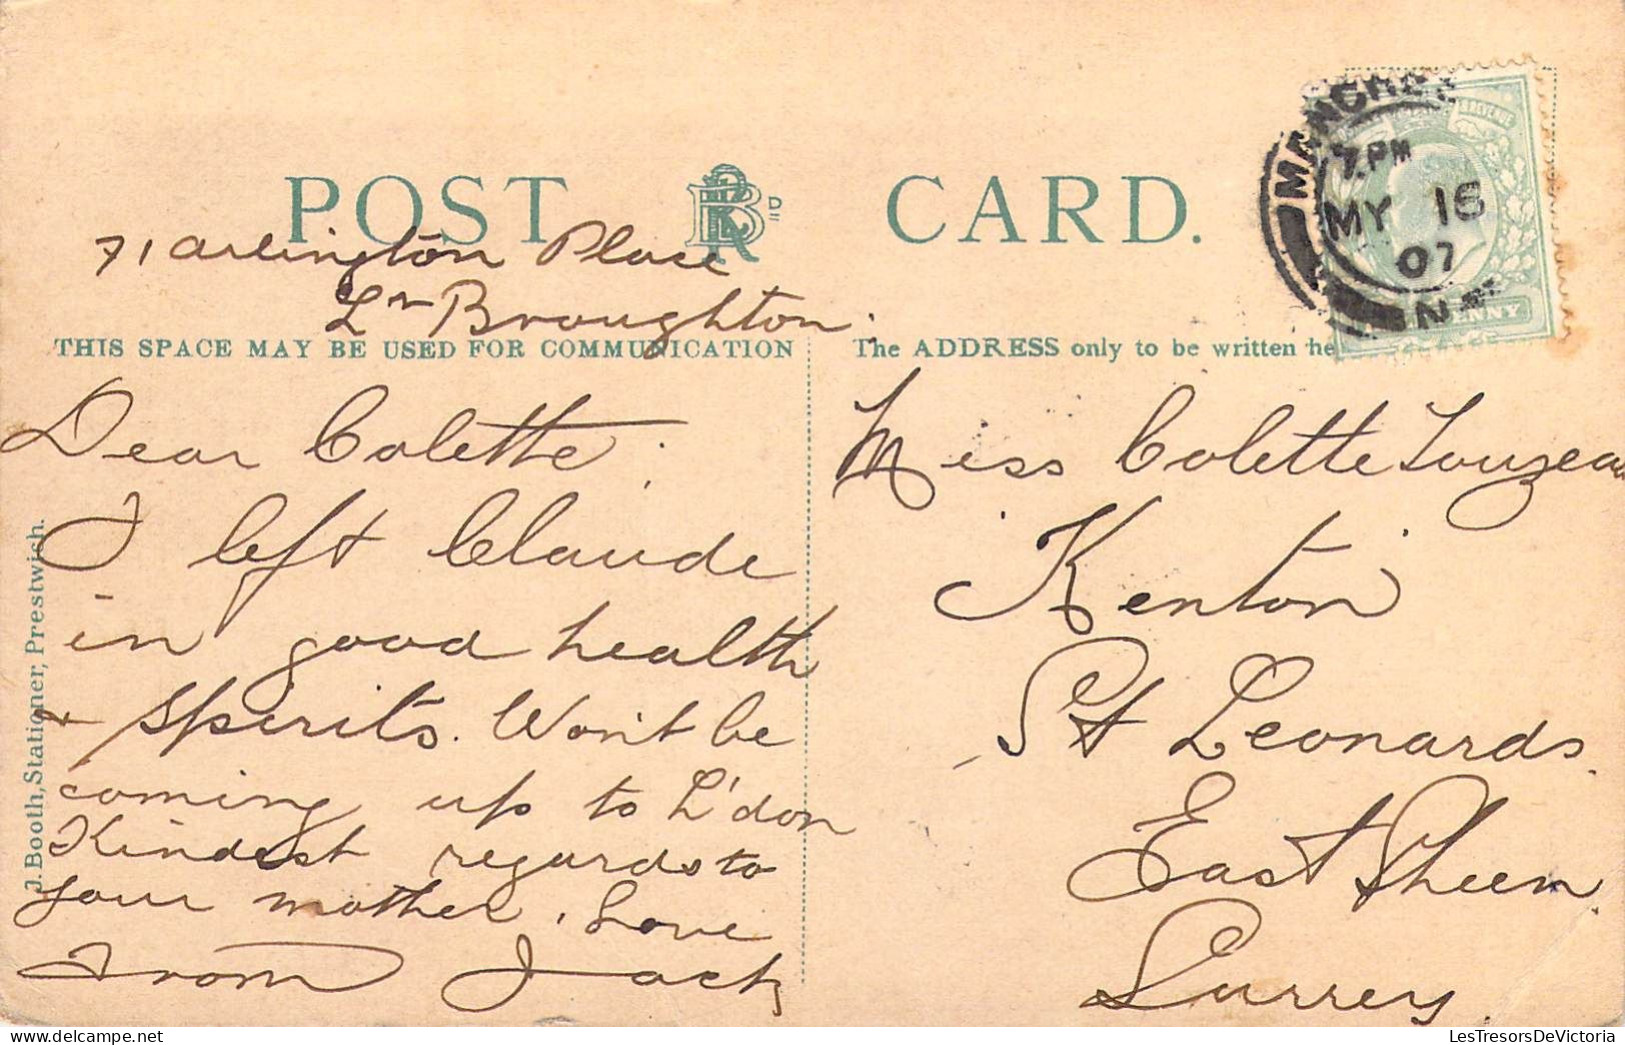 POST CARD.
RBD
71 Arlington Place
Lr Broughton.
THIS SPACE MAY BE USED FOR COMMUNICATION
The ADDRESS only to be written he
MANCHE
7. PM
MY 16
07
& REVENUE
NNY
Dear Colette.
I left Claude
in good health
& spirits. Won't be
coming up to L'don
Kindest regards to
your mother. Love
From Jack
Miss Colette Louzeau
Kenton
St Leonards.
East Sheen.
Surrey.
J. Booth, Stationer, Prestwich.
LesTresorsDeVictoria